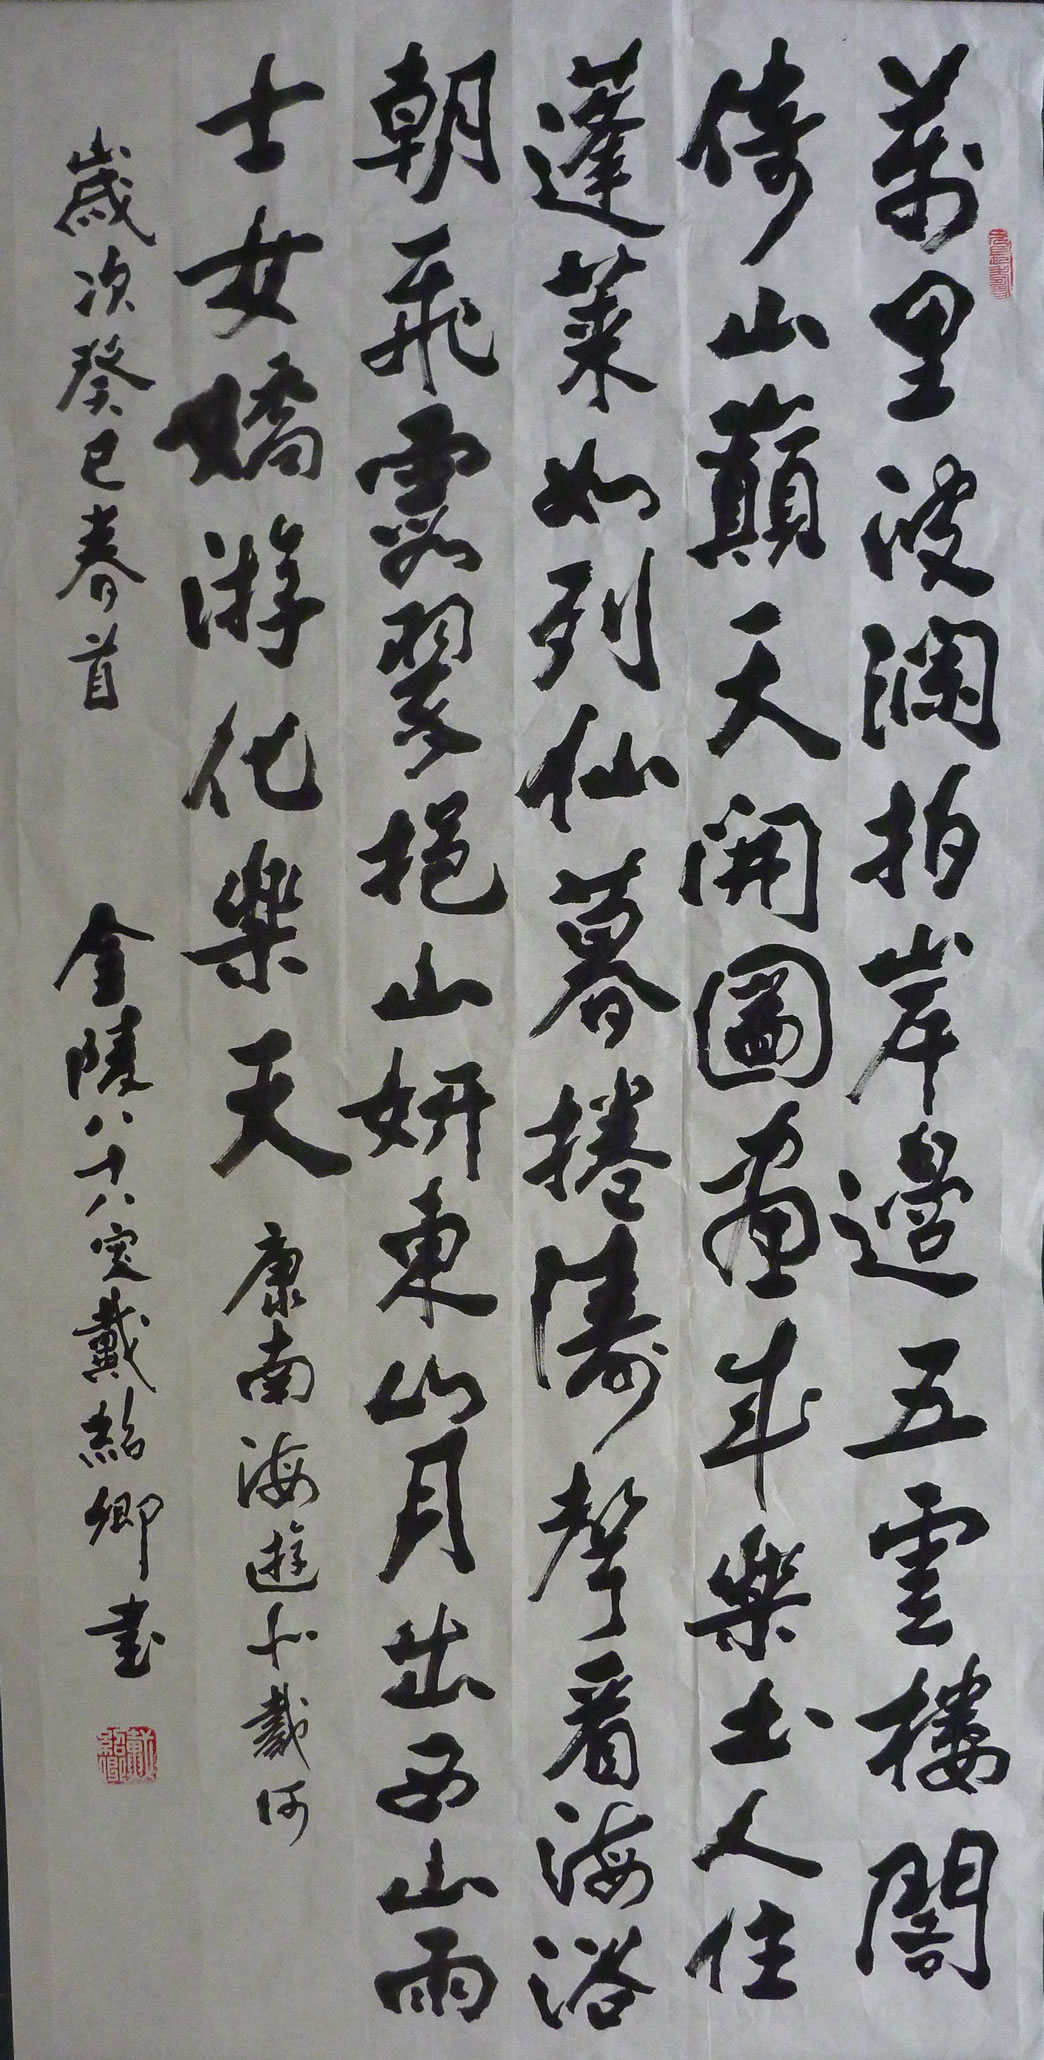 萬里波瀾拍岸邊五雲樓閣
倚山巔天開圖畫成樂土人住
蓬萊如列仙暮捲濤聲看海浴
朝飛霞翠挹山妍東山月出西山雨
士女嬌游化樂天 康南海遊北戴河
歲次癸巳春首 金陵八十八叟戴紹卿書
戴紹卿